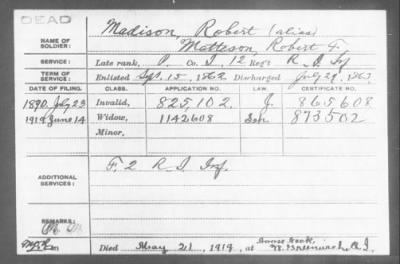 DEAD
NAME OF SOLDIER: Madison, Robert (alias)
Matteson, Robert F.
SERVICE: Late rank, P. Co. I, 12 Reg't R. I. Inf
TERM OF SERVICE: Enlisted Sept. 15, 1862 Discharged July 29, 1863
DATE OF FILING. CLASS. APPLICATION NO. LAW. CERTIFICATE NO.
1890 July 23 Invalid, 825,102. J. 865608
1919 June 14 Widow, 1142608 873502
Minor,
ADDITIONAL SERVICES: F. 2 R. I. Inf.
REMARKS:
Died May 21, 1919, at Goose Neck,
W. Greenwich, R.I.